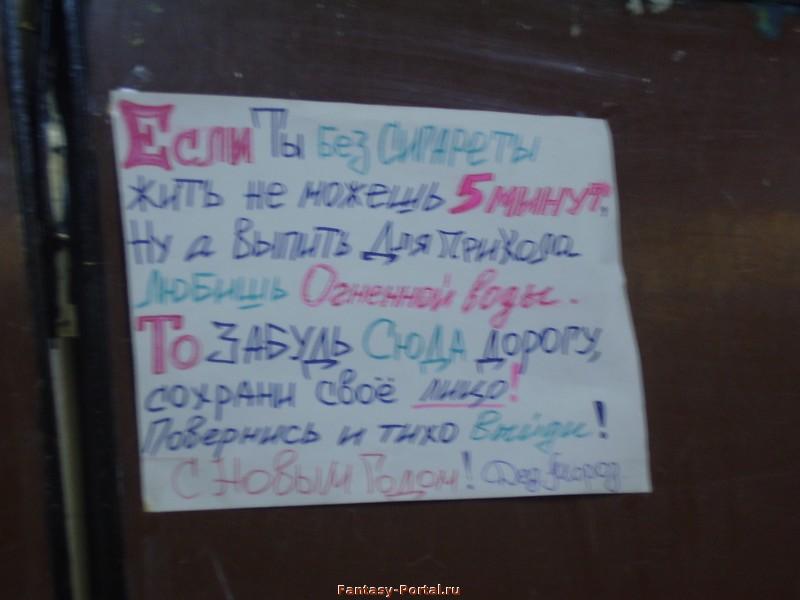 Если Ты без сигареты
жить не можешь 5 минут,
Ну а выпить для прихода
любишь Огненной воды.
То забудь сюда дорогу,
сохрани своё лицо!
Повернись и тихо выйди!
С Новым Годом! Дед Мороз
Fantasy-Portal.ru